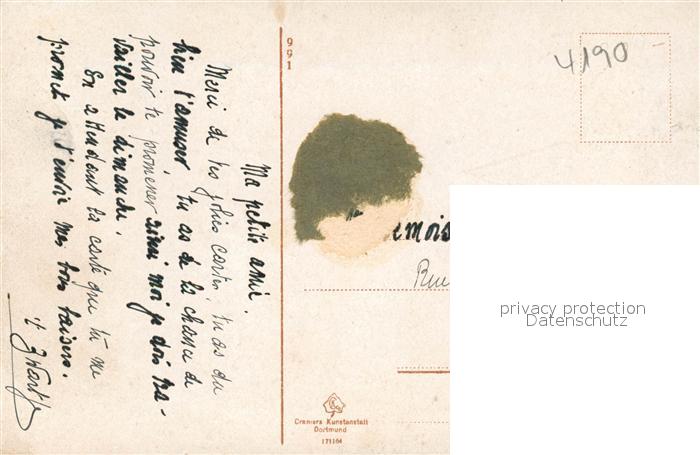 Ma petite amie.
Merci de tes jolies cartes, tu as du
bien t'amuser, tu as de la chance de
pouvoir te promener ainsi moi je dois tra-
vailler le dimanche.
En attendant ta carte que tu me
promet je t'envoie mes bons baisers.
991
4190
emois
Rue
Cramers Kunstanstalt
Dortmund
171164
privacy protection
Datenschutz